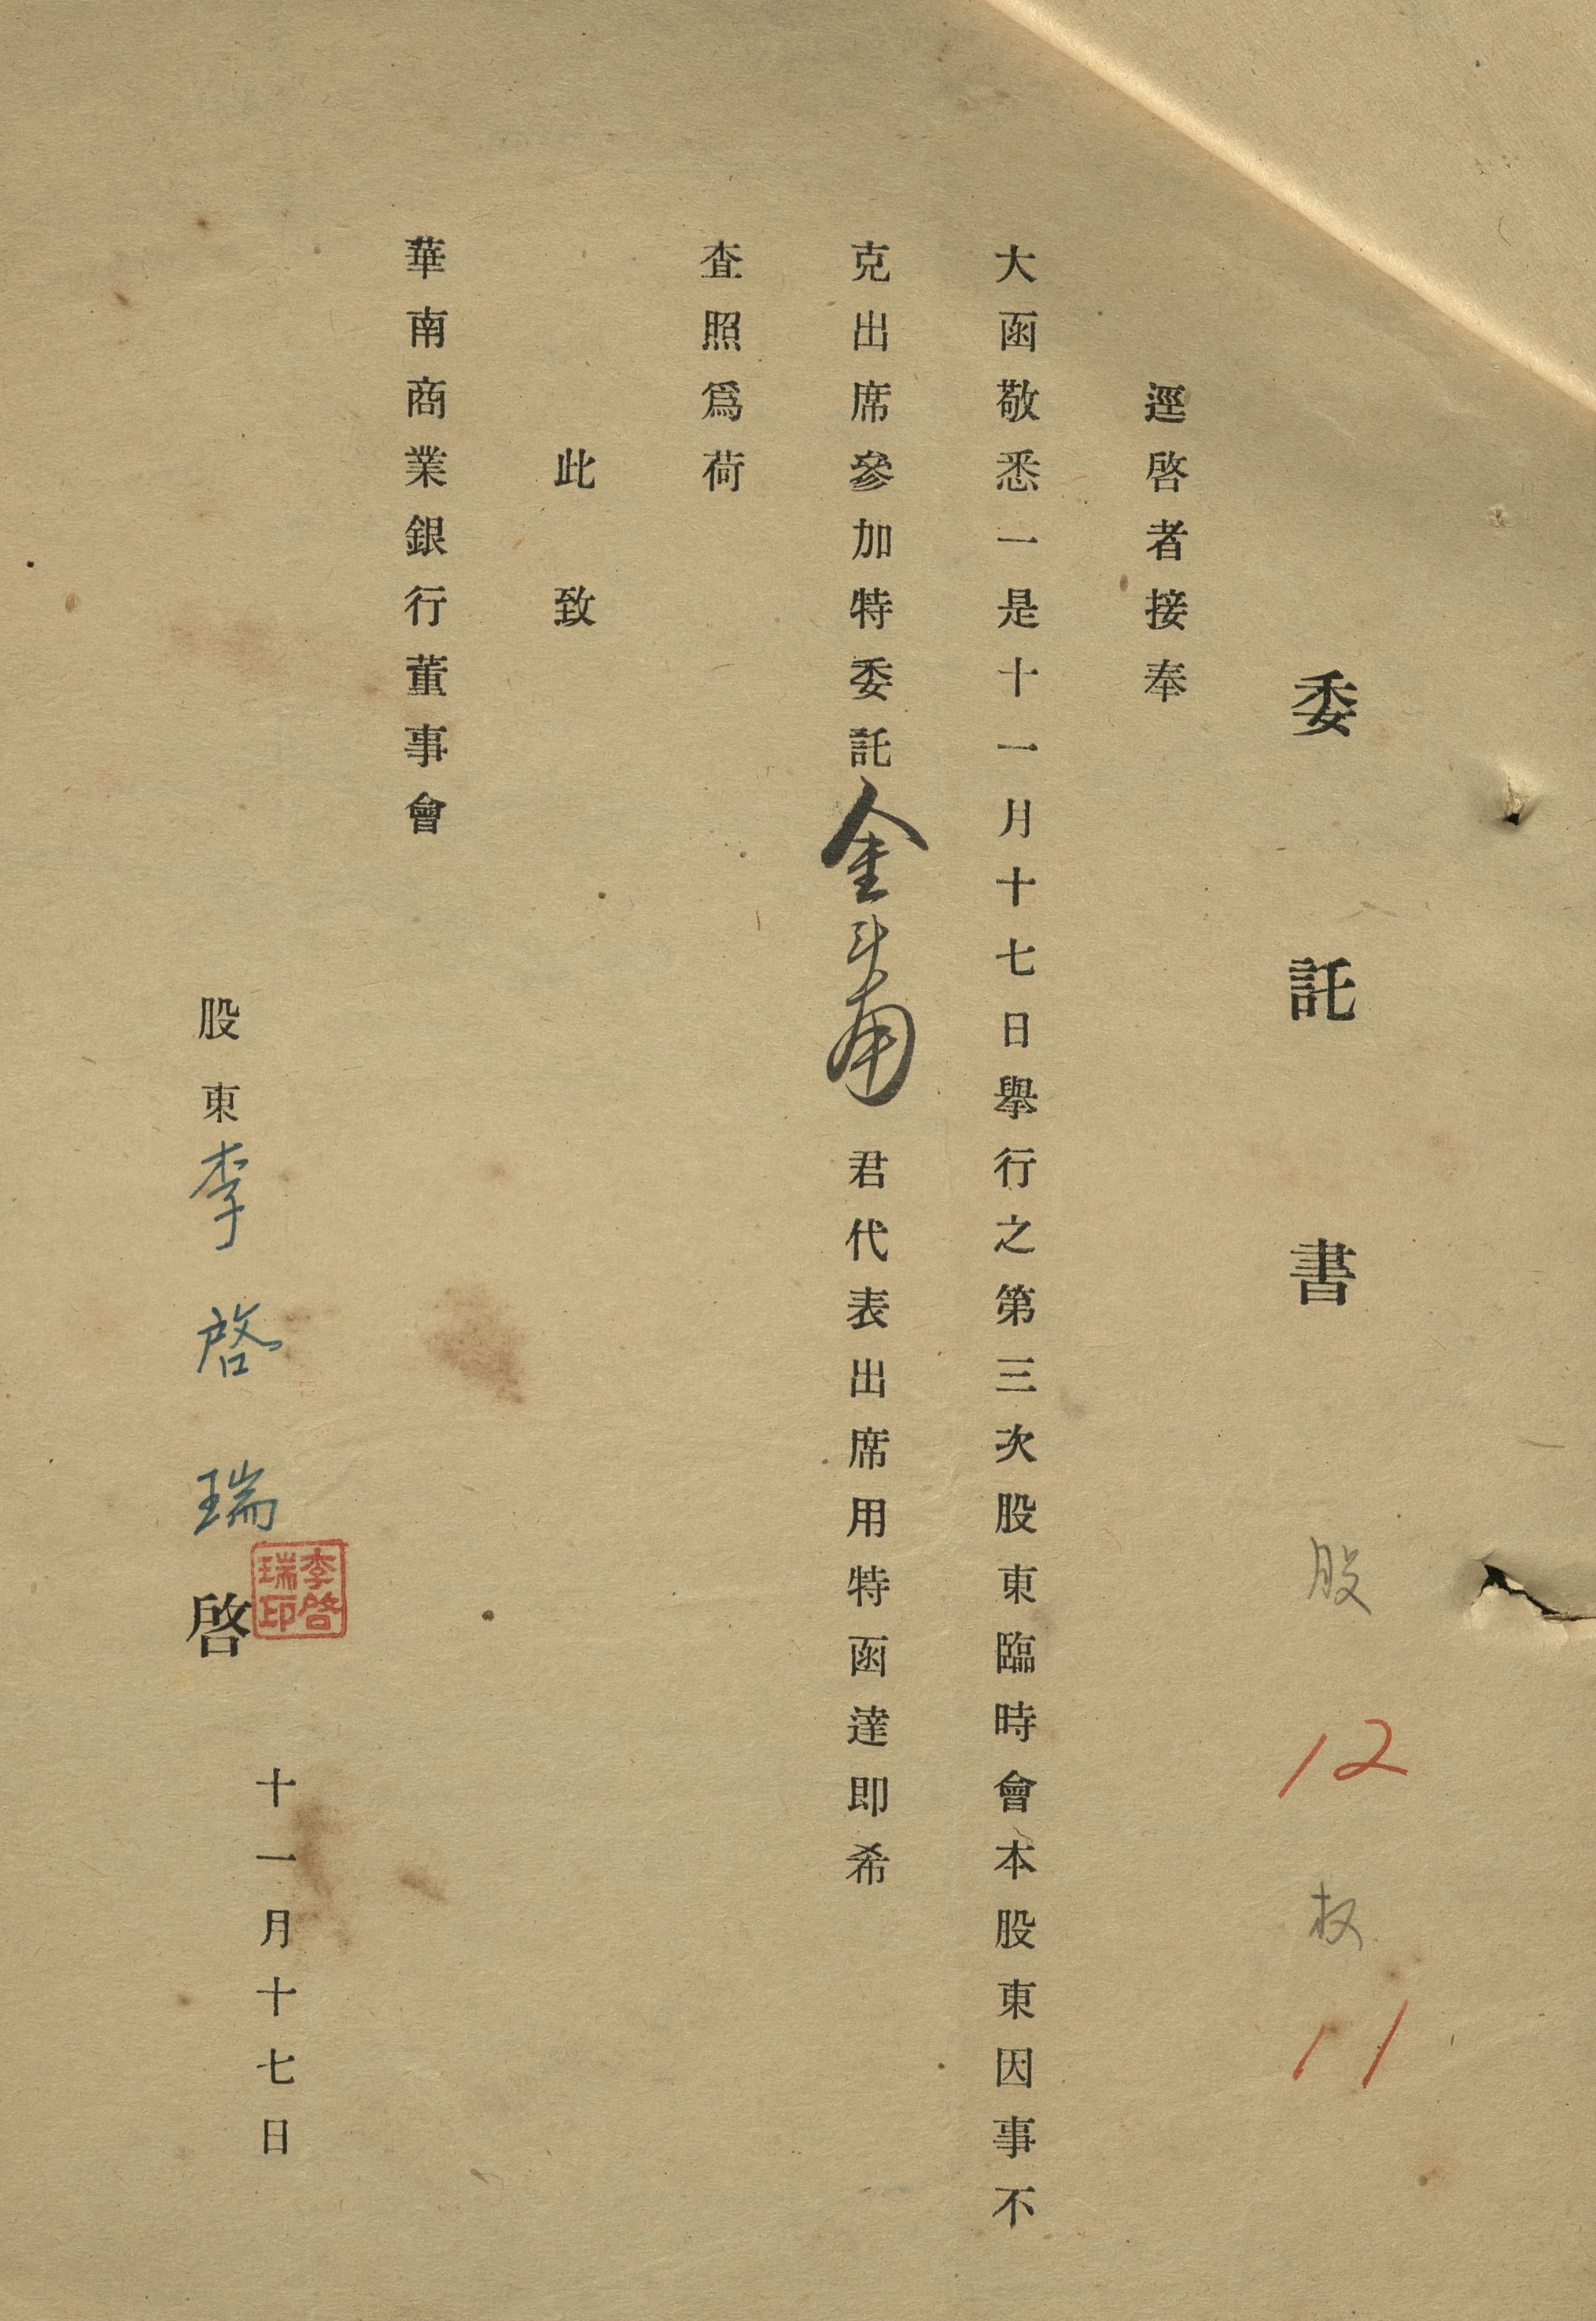 委託書 股 12 权 11
逕啓者接奉
大函敬悉一是十一月十七日舉行之第三次股東臨時會本股東因事不
克出席參加特委託金 君代表出席用特函達即希
査照爲荷
此致
華南商業銀行董事會
股東李啓瑞啓
李啓瑞印
十一月十七日